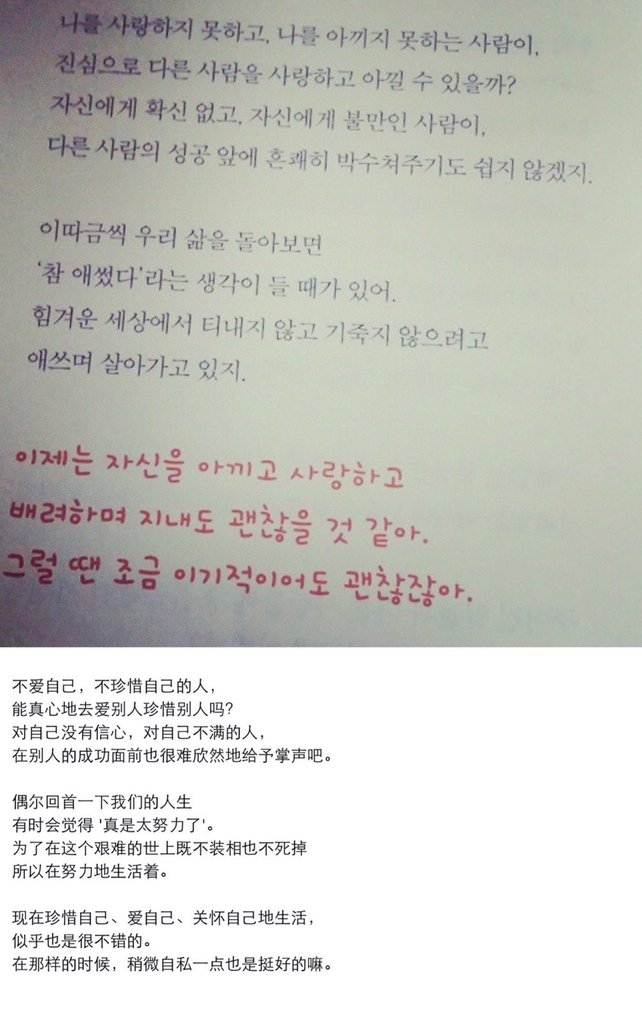 나를 사랑하지 못하고, 나를 아끼지 못하는 사람이,
진심으로 다른 사람을 사랑하고 아낄 수 있을까?
자신에게 확신 없고, 자신에게 불만인 사람이,
다른 사람의 성공 앞에 흔쾌히 박수쳐주기도 쉽지 않겠지.
이따금씩 우리 삶을 돌아보면
‘참 애썼다’라는 생각이 들 때가 있어.
힘겨운 세상에서 티내지 않고 기죽지 않으려고
애쓰며 살아가고 있지.
이제는 자신을 아끼고 사랑하고
배려하며 지내도 괜찮을 것 같아.
그럴 땐 조금 이기적이어도 괜찮잖아.
不爱自己，不珍惜自己的人，
能真心地去爱别人珍惜别人吗？
对自己没有信心，对自己不满的人，
在别人的成功面前也很难欣然地给予掌声吧。
偶尔回首一下我们的人生
有时会觉得 '真是太努力了'。
为了在这个艰难的世上既不装相也不死掉
所以在努力地生活着。
现在珍惜自己、爱自己、关怀自己地生活，
似乎也是很不错的。
在那样的时候，稍微自私一点也是挺好的嘛。